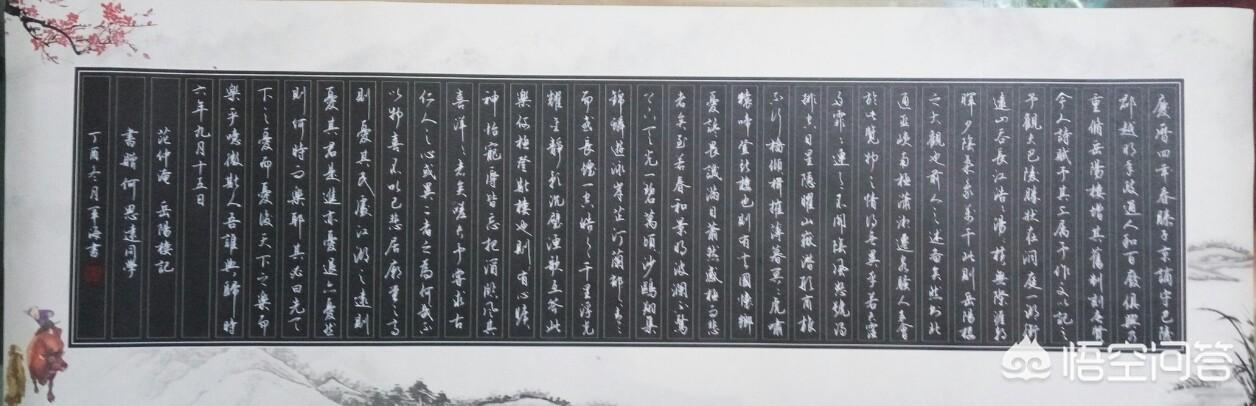 慶曆四年春滕子京謫守巴陵
郡越明年政通人和百廢俱興乃
重脩岳陽樓增其舊制刻唐賢
今人詩賦于其上屬予作文以記之
予觀夫巴陵勝狀在洞庭一湖銜
遠山吞長江浩浩湯湯橫無際涯朝
暉夕陰氣象萬千此則岳陽樓
之大觀也前人之述备矣然則北
通巫峽南極瀟湘遷客騷人多會
於此覽物之情得無異乎若夫霪
雨霏霏連月不開陰風怒號濁浪
排空日星隱曜山嶽潛形商旅
不行檣傾楫摧薄暮冥冥虎嘯
猿啼登斯樓也則有去國懷鄉
憂讒畏譏滿目蕭然感極而悲
者矣至若春和景明波瀾不驚
上下天光一碧萬頃沙鷗翔集
錦鱗遊泳岸芷汀蘭郁郁青青
而或長煙一空皓月千里浮光
耀金靜影沉璧漁歌互答此
樂何極登斯樓也則有心曠
神怡寵辱皆忘把酒臨風其
喜洋洋者矣嗟夫予嘗求古
仁人之心或異二者之為何哉不
以物喜不以己悲居廟堂之高
則憂其民處江湖之遠則
憂其君是進亦憂退亦憂然
則何時而樂耶其必曰先天
下之憂而憂後天下之樂而
樂乎噫微斯人吾誰與歸時
六年九月十五日
范仲淹 岳陽樓記
書贈何思達同學
丁酉冬月軍海書
悟空问答